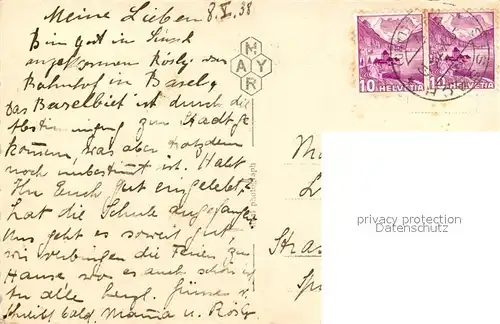 Meine Lieben 8.X.38
Bin gut in
angekommen Rösly das
Bahnhof in Basel
Das Baselbiet ist durch die
Abstimmung zur Stadt ge
kommen, was aber trotzdem
noch unbestimmt ist. Habt
Ihr Euch gut eingelebt,
hat die Schule angefangen
Uns geht es soweit gut,
wir verbringen die Ferien zu
Hause wo es auch schön ist
Euch alle herzl. Grüsse u.
schreibt bald Mama u. Rösly
MAYR
photograph
10 HELVETIA
10 HELVETIA
M
L
Stras
Sp
privacy protection
Datenschutz